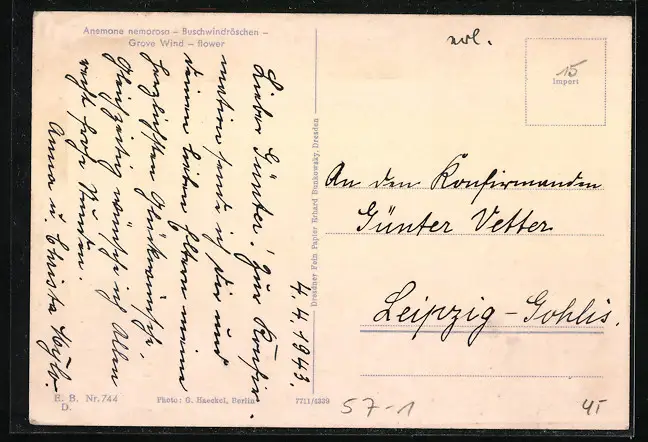 Anemone nemorosa – Buschwindröschen –
Grove Wind – flower
Lieber Günter! Zur Konfir-
mation sende ich Dir und
Deinen lieben Eltern meine
herzlichsten Glückwünsche,
Gleichzeitig wünsche ich Allen
recht frohe Stunden.
Anna u. Christa
4.4.1943.
E. B. Nr. 744
D.
Photo: G. Haeckel, Berlin
7711/4339
Dresdner Fein Papier Erhard Bunkowsky, Dresden
erl.
15
Import
An den Konfirmanden
Günter Vetter
Leipzig-Gohlis.
57-1
45